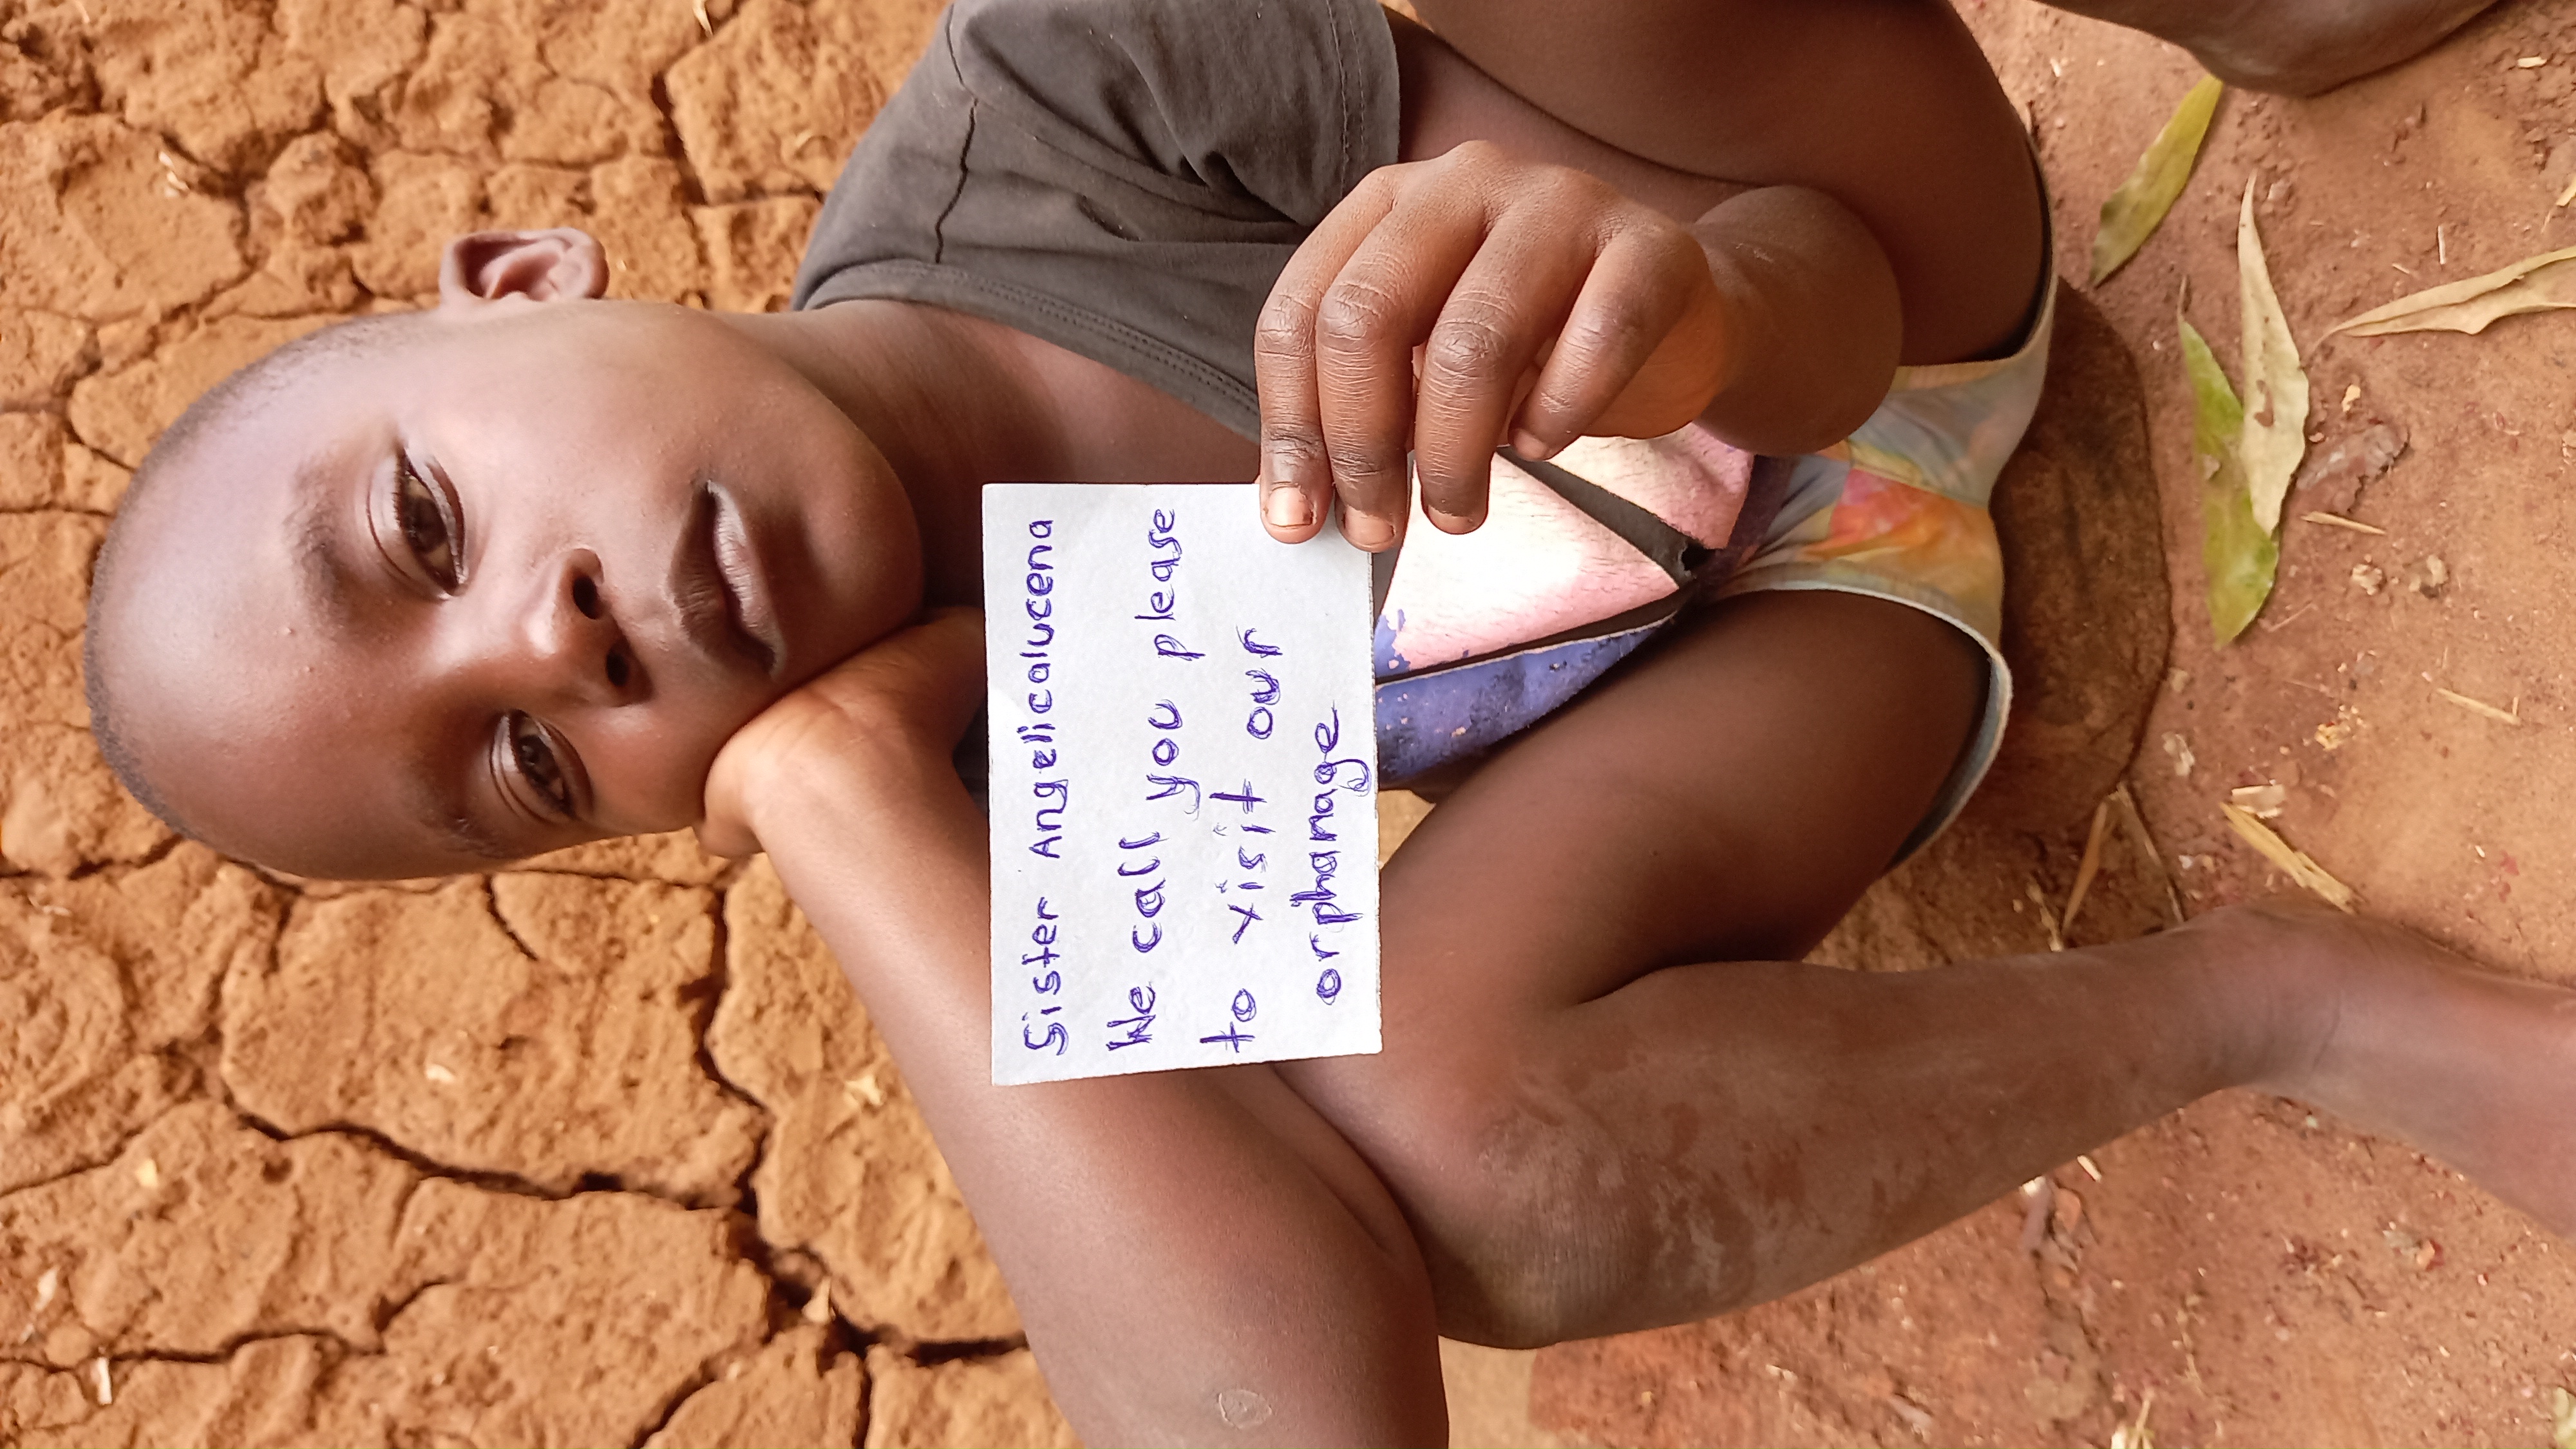 Sister Angelicalucena
We call you please
to visit our
orphanage